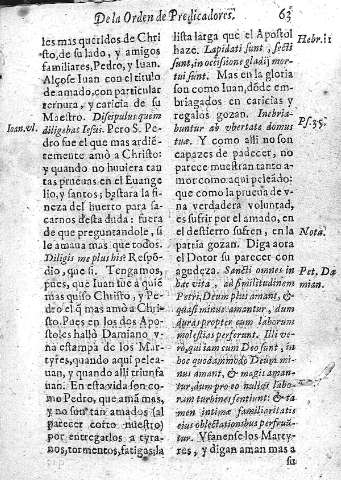 De la Orden de Predicadores. 63
les mas queridos de Chri
sto, de su lado, y amigos
familiares, Pedro, y Iuan.
Alçose Iuan con el titulo
de amado, con particular
ternura, y caricia de su
Maestro. Discipulus quem
Ioan. vl. diligebas Iesus. Pero S. Pe-
dro fue el que mas ardie-
temente amò a Christo:
y quando no huuiera tan
tas prueuas en el Euange
lio, y santos; bastara la fi-
neza del huerto para sa-
carnos desta duda: fuera
de que preguntandole, si
le amaua mas que todos.
Diligis me plus his? Respõ-
dio, que si. Tengamos,
pues, que Iuan fue a quie
mas quiso Christo, y Pe-
dro el q̃ mas amò a Chri-
sto. Pues en los dos Apo-
stoles hallò Damiano v-
na estampa de los Mar-
tyres, quando aqui pelea-
uan, y quando alli triunfa
uan. En esta vida son co-
mo Pedro, que amã mas,
y no son tan amados (al
parecer corto nuestro)
por entregarlos a tyra-
nos, tormentos, fatigas; la
lista larga que el Apostol
haze. Lapidati sunt, secti Hebr. 11
sunt, in occisione gladij mor-
tui sunt. Mas en la gloria
son como Iuan, dõde em-
briagados en caricias y
regalos gozan. Inebria-
buntur ab vbertate domus Ps. 35.
tuæ. Y como alli no son
capazes de padecer, no
parece muestran tanto a-
mor como aqui peleãdo:
que como la prueua de v-
na verdadera voluntad,
es sufrir por el amado, en
el destierro sufren, en la Nota.
patria gozan. Diga aora
el Dotor su parecer con
agudeza. Sancti omnes in Pet. Da
hac vita, ad similitudinem mian.
Petri, Deum plus amant, &
quasi minus amantur, dum
duras propter eum laborum
molestias perferunt. Illi ve-
rò, qui iam cum Deo sunt, in
hoc quodammodo Deum mi-
nus amant, & magis aman-
tur, dum pro eo nullos labo-
rum turbines sentiunt: & ta
men intimæ familiaritatis
eius oblectationibus perfruũ-
tur. Vfanense los Marty-
res, y digan aman mas a
su